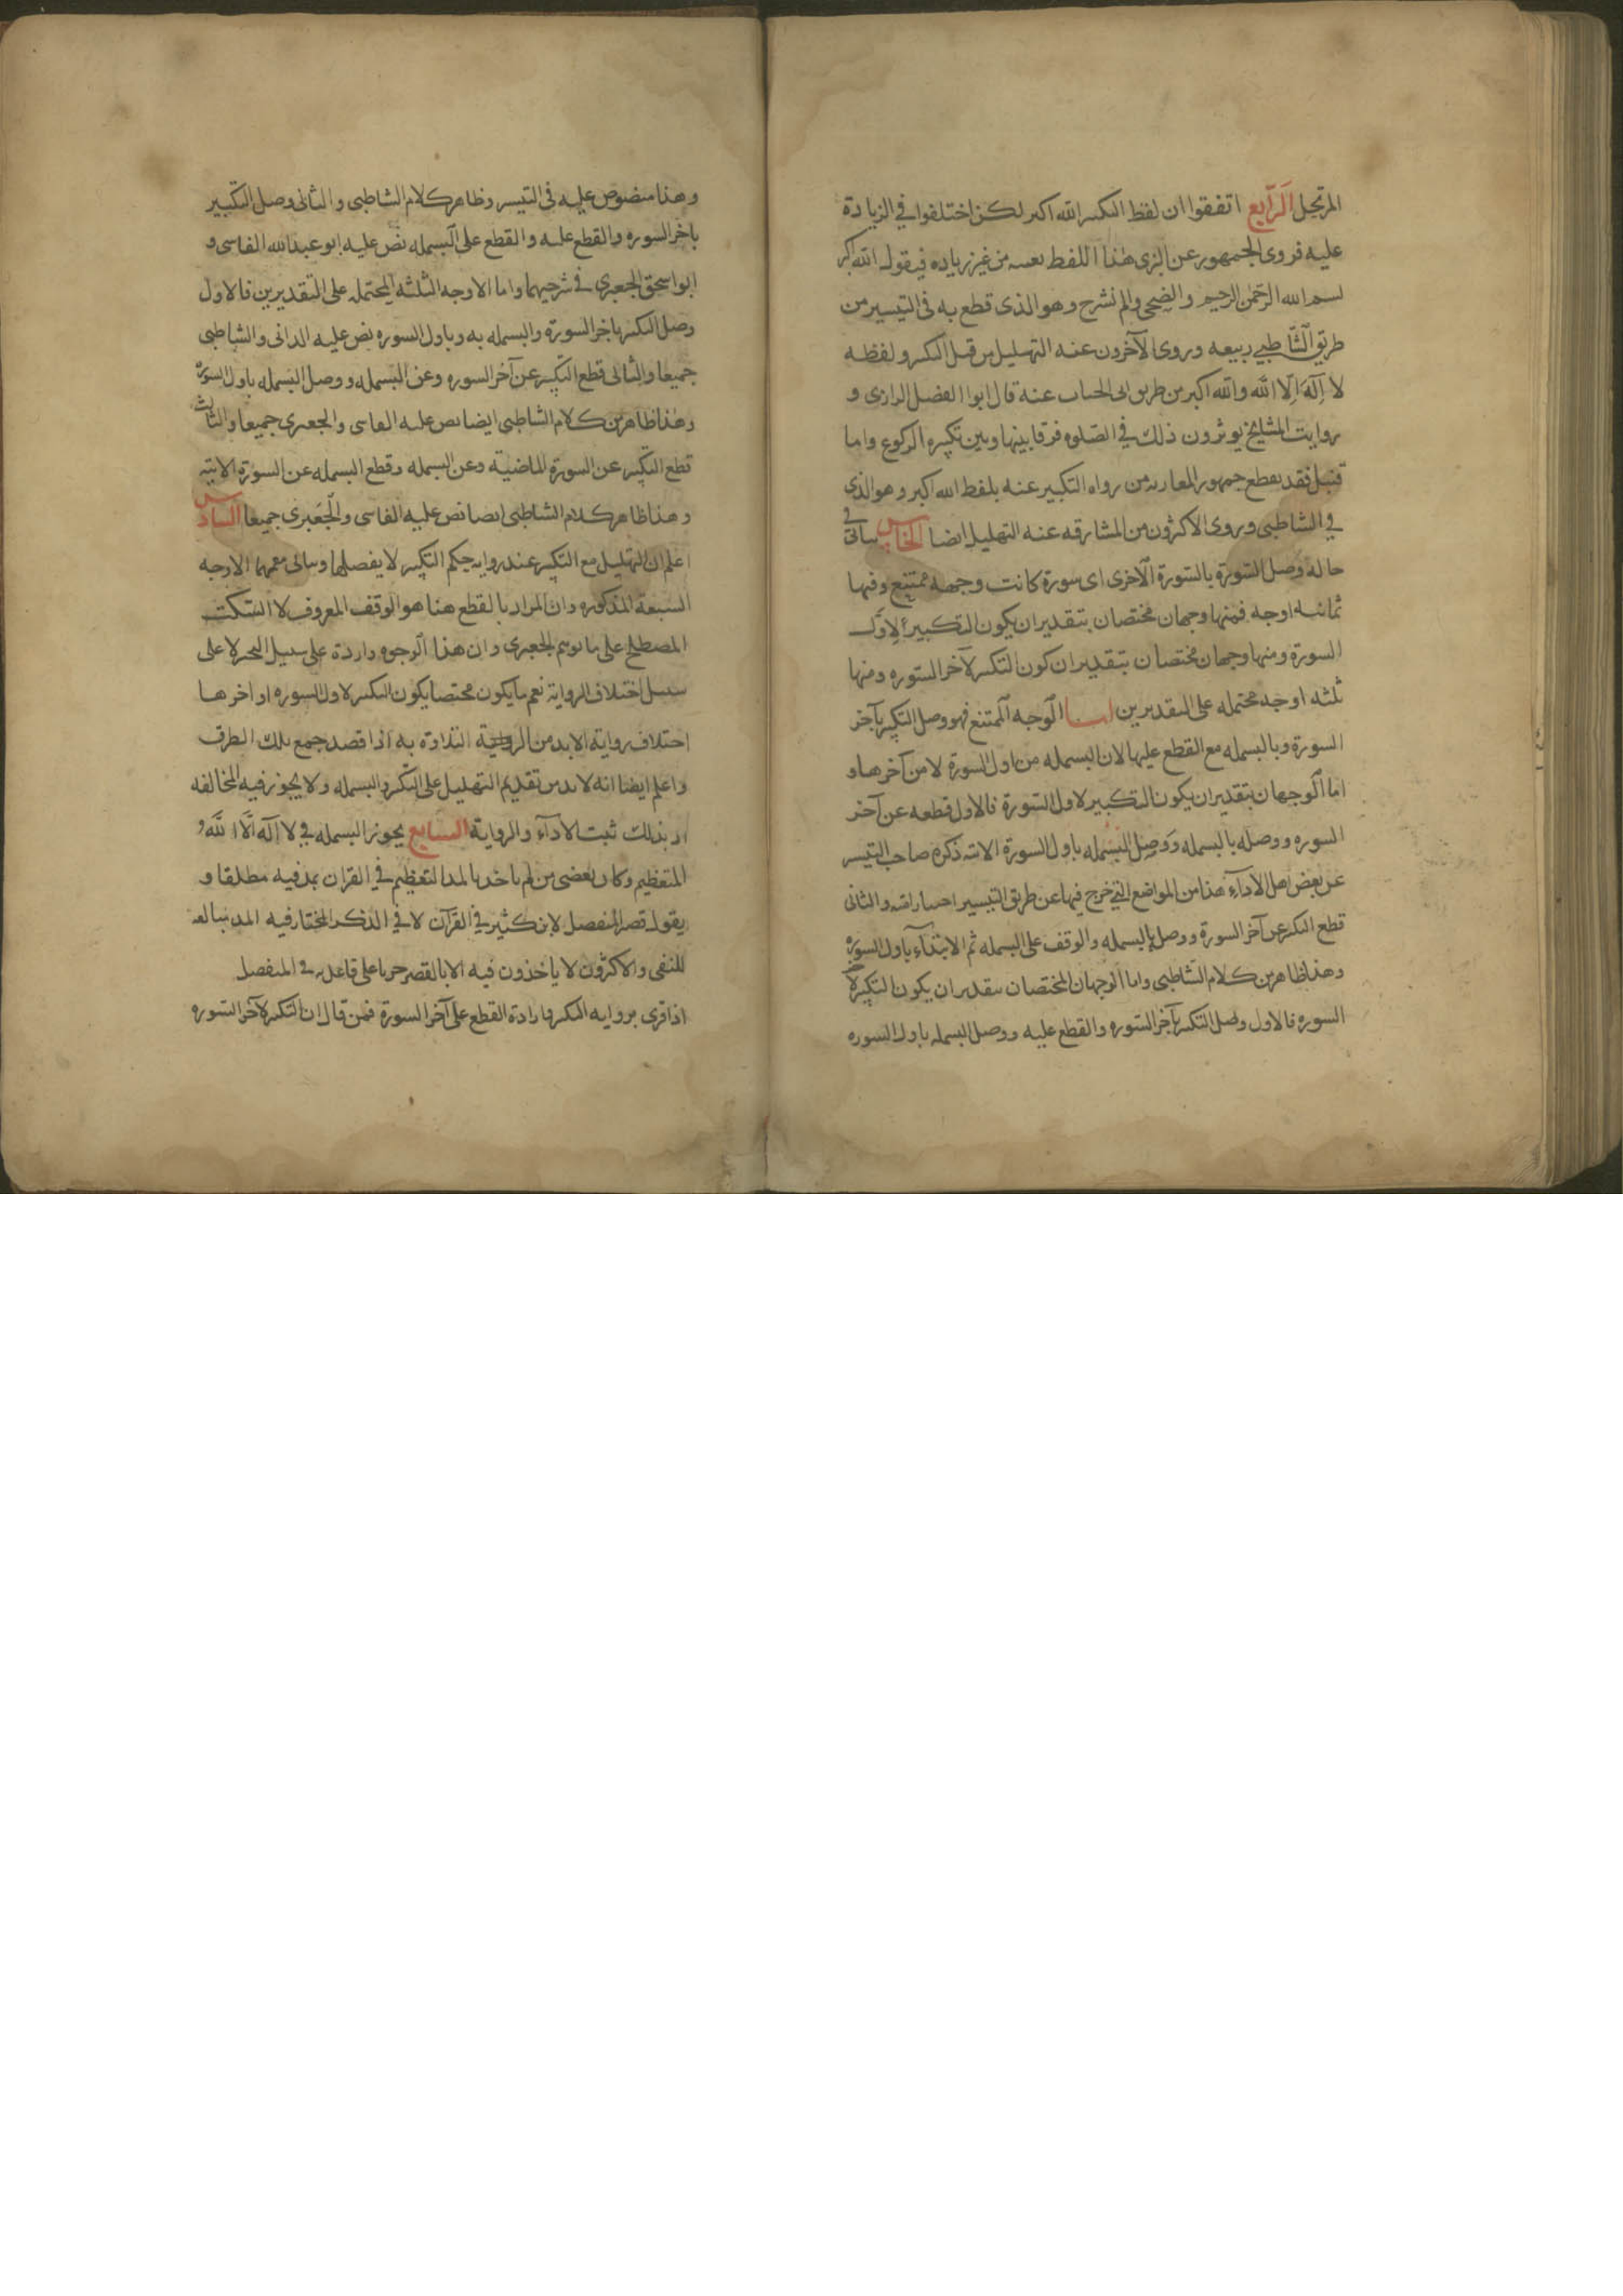 المرتجل الرابع اتفقوا ان لفظ التكبير الله اكبر لكن اختلفوا في الزيادة
عليه فروى الجمهور عن البزى هذا اللفظ بعينه من غير زياده فيقول الله اكبر
بسم الله الرحمن الرحيم والضحى والم نشرح وهو الذى قطع به فى التيسير من
طريق الشاطبي ربيعه وروى الآخرون عنه التهليل من قبل التكبير ولفظه
لا اله الا الله والله اكبر من طريق ابى الحباب عنه قال ابوا الفضل الرازى و
روايت المشايخ يوثرون ذلك في الصلوه فرقا بينها وبين تكبيره الركوع واما
قنبل فقد يقطع جمهور المغاربه من رواه التكبير عنه بلفظ الله اكبر وهو الذى
في الشاطبى وروى الاكثرون من المشارقه عنه التهليل ايضا الخامس ياتى فى
حالة وصل السورة بالسورة الاخرى اى سورة كانت وجهه ممتنع وفيها
ثمانيه اوجه فمنها وجهان مختصان بتقدير ان يكون التكبير لاول
السورة ومنها وجهان مختصان بتقدير ان كون التكبير لآخر السوره ومنها
ثلثه اوجه محتمله على التقديرين اما الوجه الممتنع فهو وصل التكبير بآخر
السورة وبالبسمله مع القطع عليها لان البسمله من اول السورة لا من آخرها و
اما الوجهان بتقدير ان يكون التكبير لاول السورة فالاول قطعه عن آخر
السوره ووصله بالبسمله ووصل البسمله باول السورة الاتيه ذكره صاحب التيسير
عن بعض اهل الاداء هذا من المواضع التي خرج فيها عن طريق التيسير اختيارا منه والثانى
قطع التكبير عن آخر السورة ووصل بالبسمله والوقف على البسمله ثم الابتداء باول السوره
وهذا ظاهر من كلام الشاطبى واما الوجهان المختصان بتقدير ان يكون التكبير لآخر
السوره فالاول وصل التكبير بآخر السوره والقطع عليه ووصل البسمله باول السوره
وهذا منصوص عليه فى التيسير وظاهر كلام الشاطبى والثانى وصل التكبير
باخر السوره والقطع عليه والقطع على البسمله نص عليه ابو عبد الله الفاسى و
ابو اسحق الجعبرى في شرحيهما واما الاوجه الثلثه المحتمله على التقديرين فالاول
وصل التكبير باخر السورة والبسمله به وباول السوره نص عليه الدانى والشاطبى
جميعا والثانى قطع التكبير عن آخر السوره وعن البسمله ووصل البسمله باول السوره
وهذا ظاهر من كلام الشاطبى ايضا نص عليه الفاسى والجعبرى جميعا والثالث
قطع التكبير عن السورة الماضية وعن البسمله وقطع البسمله عن السورة الاتيه
وهذا ظاهر كلام الشاطبى ايضا نص عليه الفاسى والجعبرى جميعا السادس
اعلم ان التهليل مع التكبير عند روايه حكم التكبير لا يفصلها وياتى معهما الاوجه
السبعة المذكوره وان المراد بالقطع هنا هو الوقف المعروف لا السكت
المصطلح على ما توهم الجعبرى وان هذا الوجوه واردة على سبيل التخيير لا على
سبيل اختلاف الرواية نعم ما يكون مختصا يكون التكبير لاول السوره او اخرها
اختلاف رواية لابد من التلاوة به اذا قصد جمع تلك الطرق
واعلم ايضا انه لابد من تقديم التهليل على التكبير والبسمله ولا يجوز فيه المخالفه
اذ بذلك ثبت الاداء والرواية السابع يجوز البسمله في لا اله الا الله و
المتعظيم وكان بعضى من لم ياخذ بالمد التعظيم في القران بمد فيه مطلقا و
يقول قصر المنفصل لابن كثير في القرآن لا في الذكر المختار فيه المد مبالغه
للنفى والاكثرون لا ياخذون فيه الا بالقصر جريا على قاعدته في المنفصل
اذا قرى بروايه التكبير فارادة القطع على آخر السورة فمن قال ان التكبير لآخر السوره